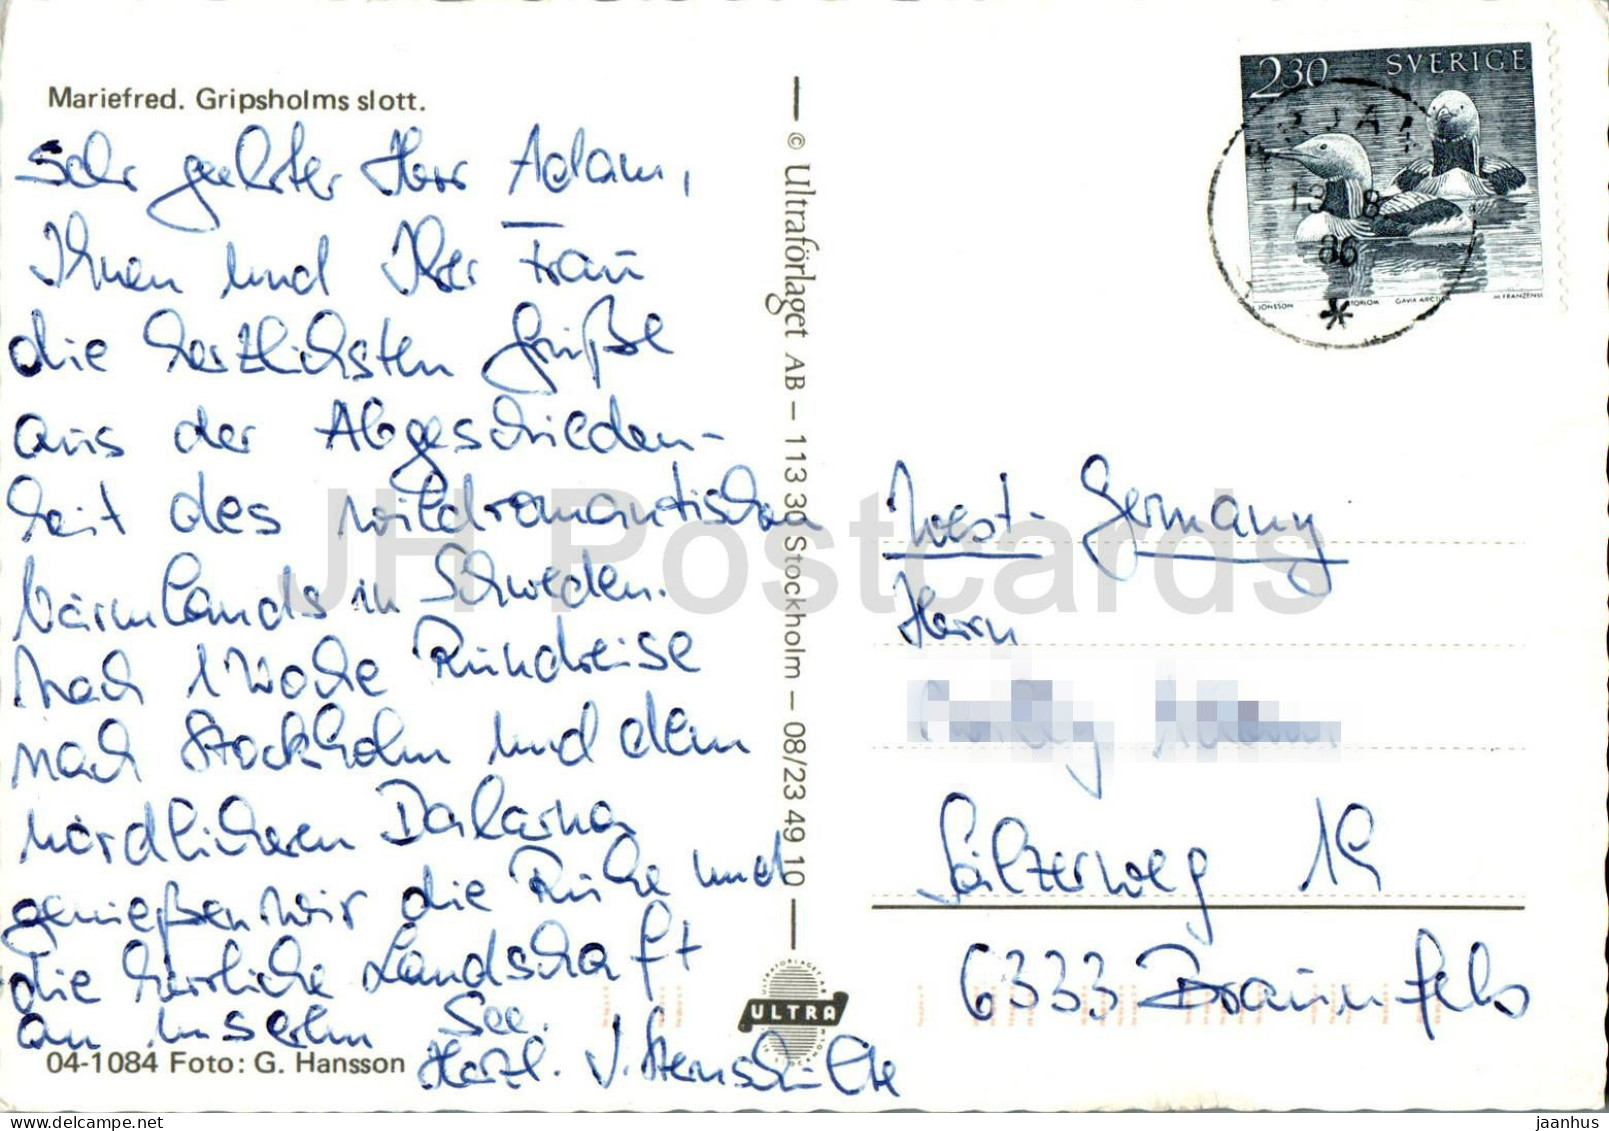 Mariefred. Gripsholms slott.
Sehr geehrter Herr Adam,
Ihnen und Ihrer Frau
die herzlichsten Grüße
aus der Abgeschieden-
heit des wildromantischen
Värmlands in Schweden.
Nach 1 Woche Rundreise
nach Stockholm und dem
nördlicheren Dalarna
genießen wir die Ruhe und
die herrliche Landschaft
an unserem See.
Herzl.
04-1084 Foto: G. Hansson
© Ultraförlaget AB – 113 30 Stockholm – 08/23 49 10
ULTRA
2.30 SVERIGE
13 8
86
JONSSON GAVIA ARCTICA
West-Germany
Herrn
Sälzerweg 19
6333 Braunfels
JH Postcards
https://www.delcampe.net
jaanhus